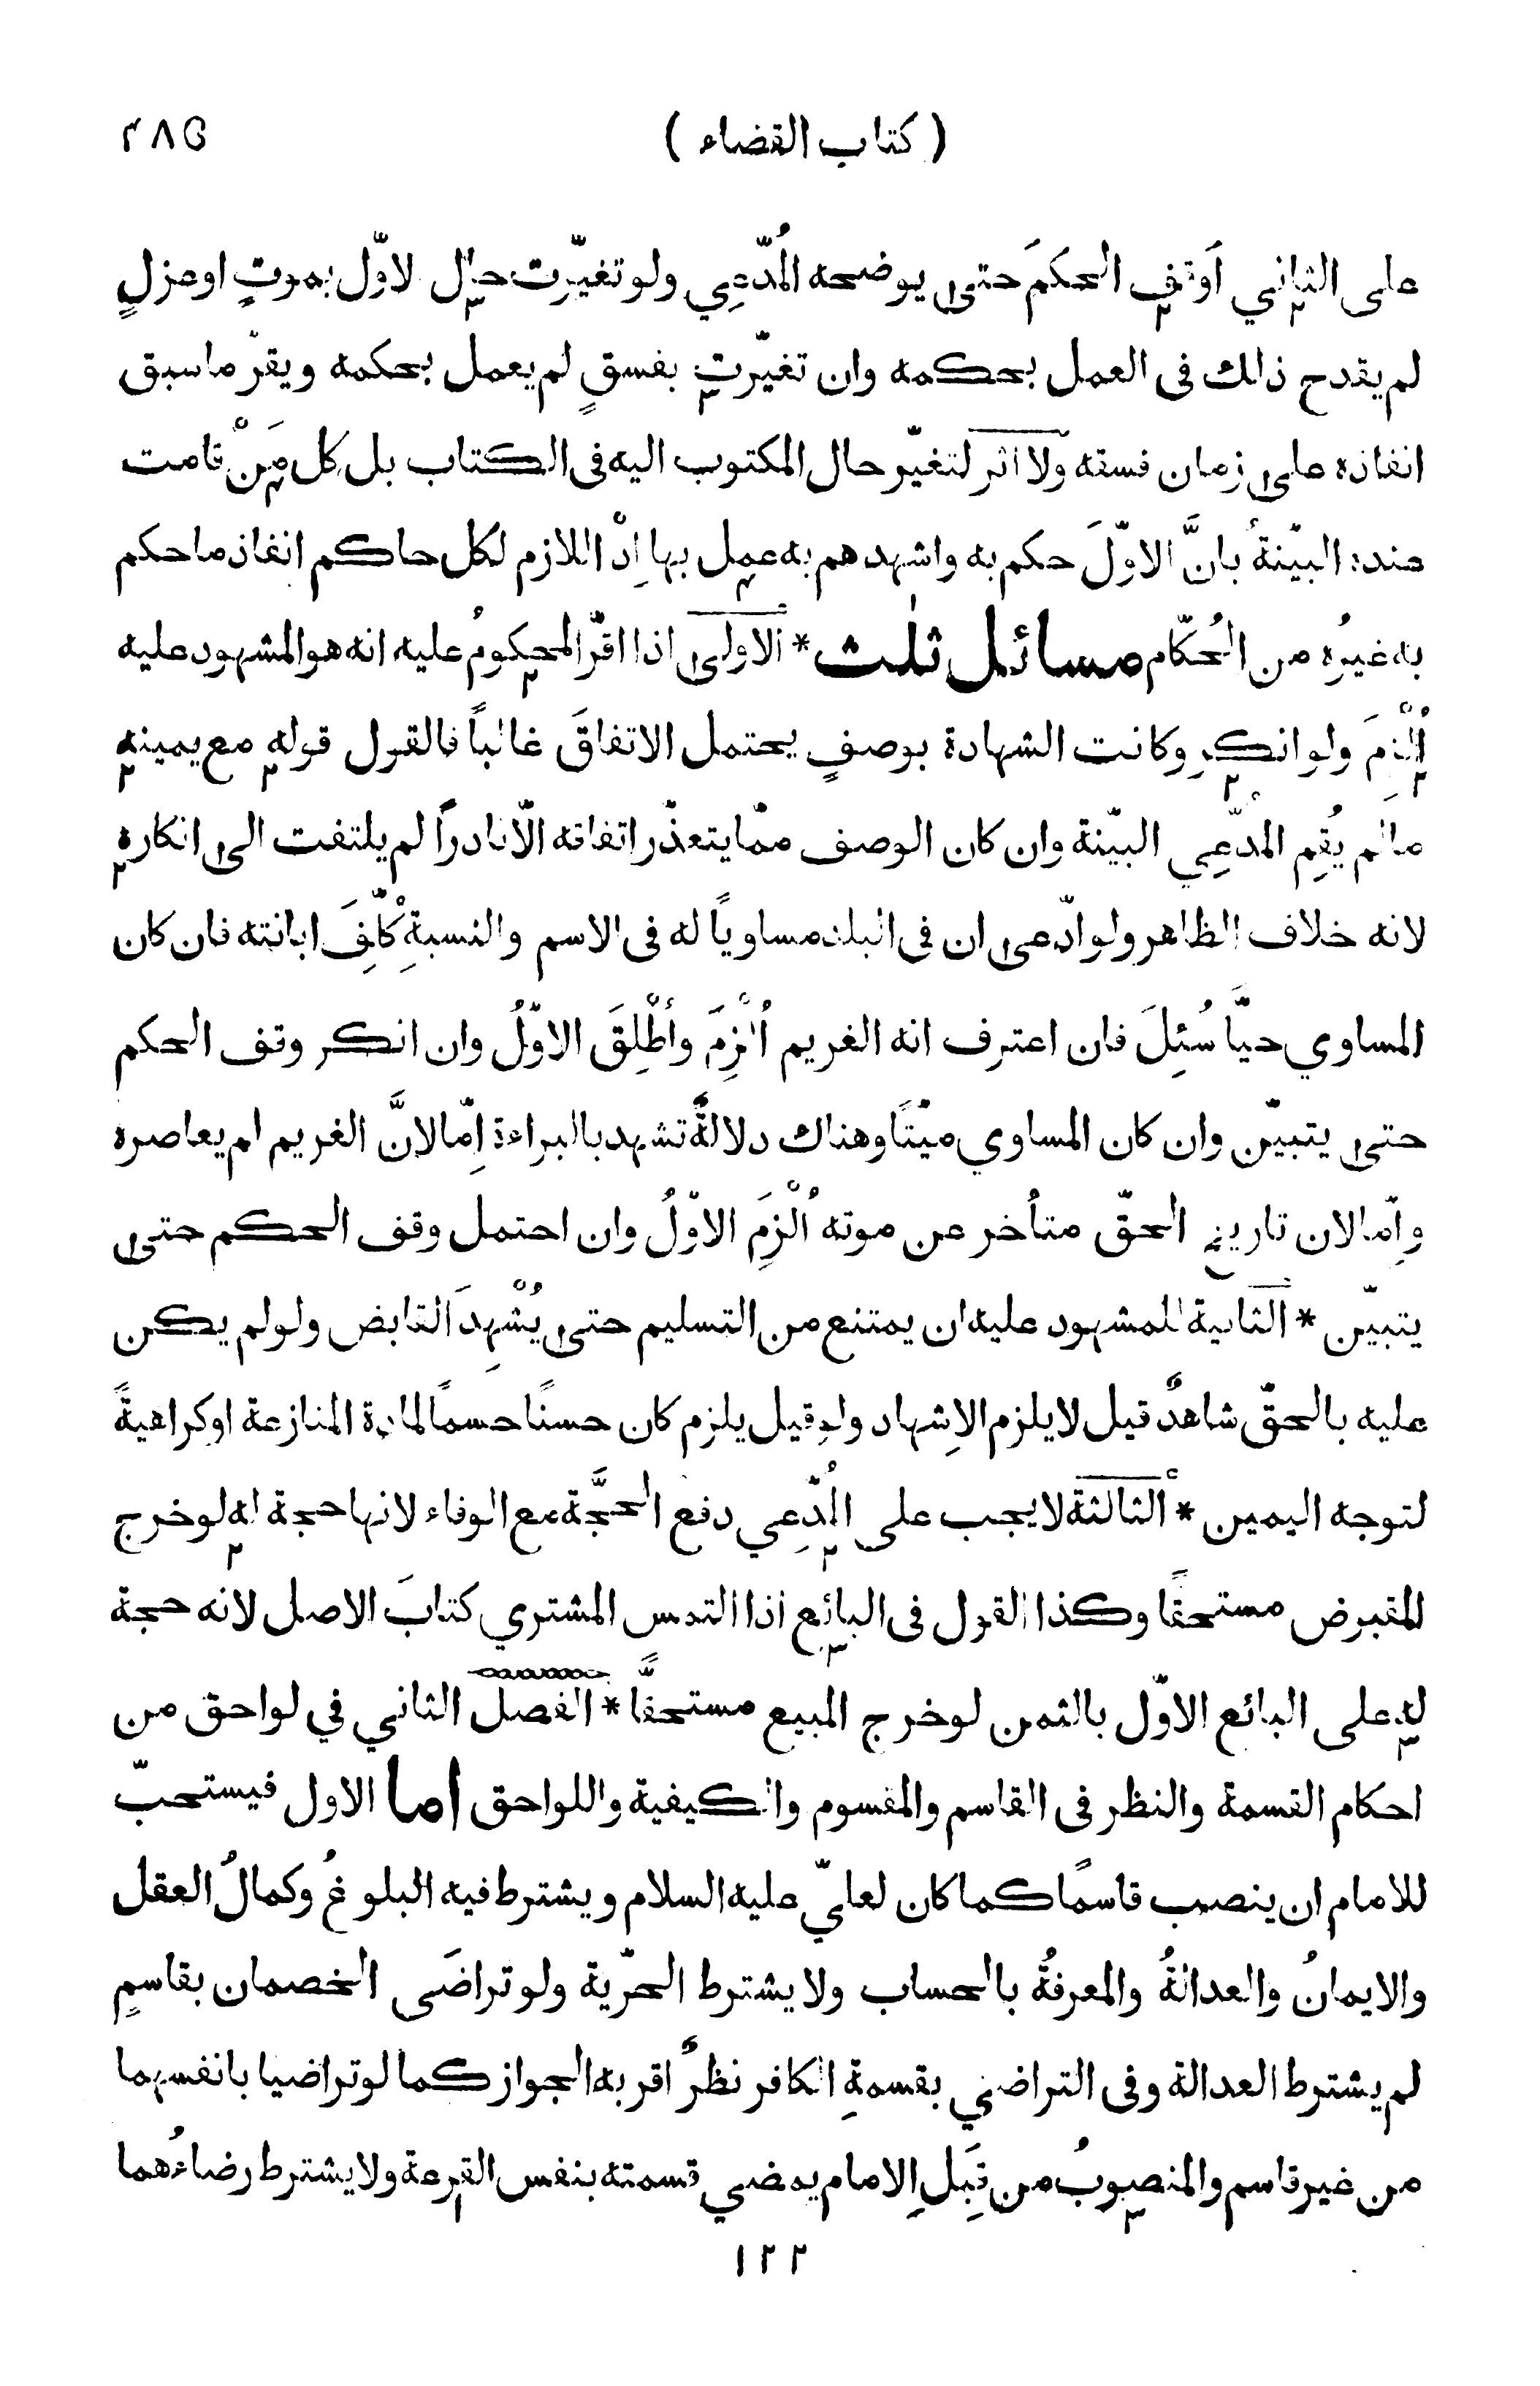 ( كتاب القضاء ) ٤٨٥
على الثاني اَوقفِ الحكمَ حتى يوضحه الُمدّعِي ولو تغيّرت حال الاوّل بموتٍ او عزلٍ
لم يقدح ذلك فى العمل بحكمه وان تغيّرت بفسقٍ لم يعمل بحكمه ويقرّ ما سبق
انفاذه على زمان فسقه ولا اثر لتغيّر حال المكتوب اليه فى الكتاب بل كل مَنْ قامت
عنده البيّنةُ بانَّ الاوّلَ حكم به واشهدهم به عمل بها اِذْ اللازم لكل حاكم انفاذ ما حكم
به غيرُه من الحُكّام مسائل ثلث * الاولى اذا اقرّ المحكومُ عليه انه هو المشهود عليه
اُلْزِمَ ولو انكر وكانت الشهادة بوصفٍ يحتمل الاتفاقَ غالباً فالقول قوله مع يمينه
ما لم يُقِم المدّعِي البيّنة وان كان الوصف ممّا يتعذّر اتفاقه الّا نادراً لم يلتفت الى انكاره
لانه خلاف الظاهر ولو ادّعى ان فى البلد مساوياً له فى الاسم والنسبةِ كُلِّفَ ابانته فان كان
المساوي حيًّا سُئِلَ فان اعترف انه الغريم اُلْزِمَ وأُطْلِقَ الاوّلُ وان انكر وقف الحكم
حتى يتبيّن وان كان المساوي ميتًا وهناك دلالةٌ تشهد بالبراءة اِمّا لانَّ الغريم لم يعاصره
واِمّا لان تاريخ الحقّ متأخر عن موته اُلْزِمَ الاوّلُ وان احتمل وقف الحكم حتى
يتبيّن * الثانية للمشهود عليه ان يمتنع من التسليم حتى يُشْهِدَ القابض ولو لم يكن
عليه بالحقّ شاهدٌ قيل لا يلزم الاِشهاد ولو قيل يلزم كان حسنًا حسمًا لمادة المنازعة او كراهيةً
لتوجه اليمين * الثالثة لا يجب على المُدّعِي دفع الحجَّة مع الوفاء لانها حجة له لو خرج
المقبوض مستحقًا وكذا القول فى البائع اذا التمس المشتري كتابَ الاصل لانه حجة
له على البائع الاوّل بالثمن لو خرج المبيع مستحقًّا * الفصل الثاني في لواحق من
احكام القسمة والنظر فى القاسم والمقسوم والكيفية واللواحق اما الاول فيستحبّ
للامام ان ينصب قاسمًا كما كان لعليّ عليه السلام ويشترط فيه البلوغُ وكمالُ العقل
والايمانُ والعدالةُ والمعرفةُ بالحساب ولا يشترط الحرّية ولو تراضَى الخصمان بقاسمٍ
لم يشترط العدالة وفى التراضي بقسمةِ الكافر نظرٌ اقربه الجواز كما لو تراضيا بانفسهما
من غير قاسم والمنصوبُ من قِبَلِ الامام يمضي قسمته بنفس القرعة ولا يشترط رضاءُهما
١٢٢